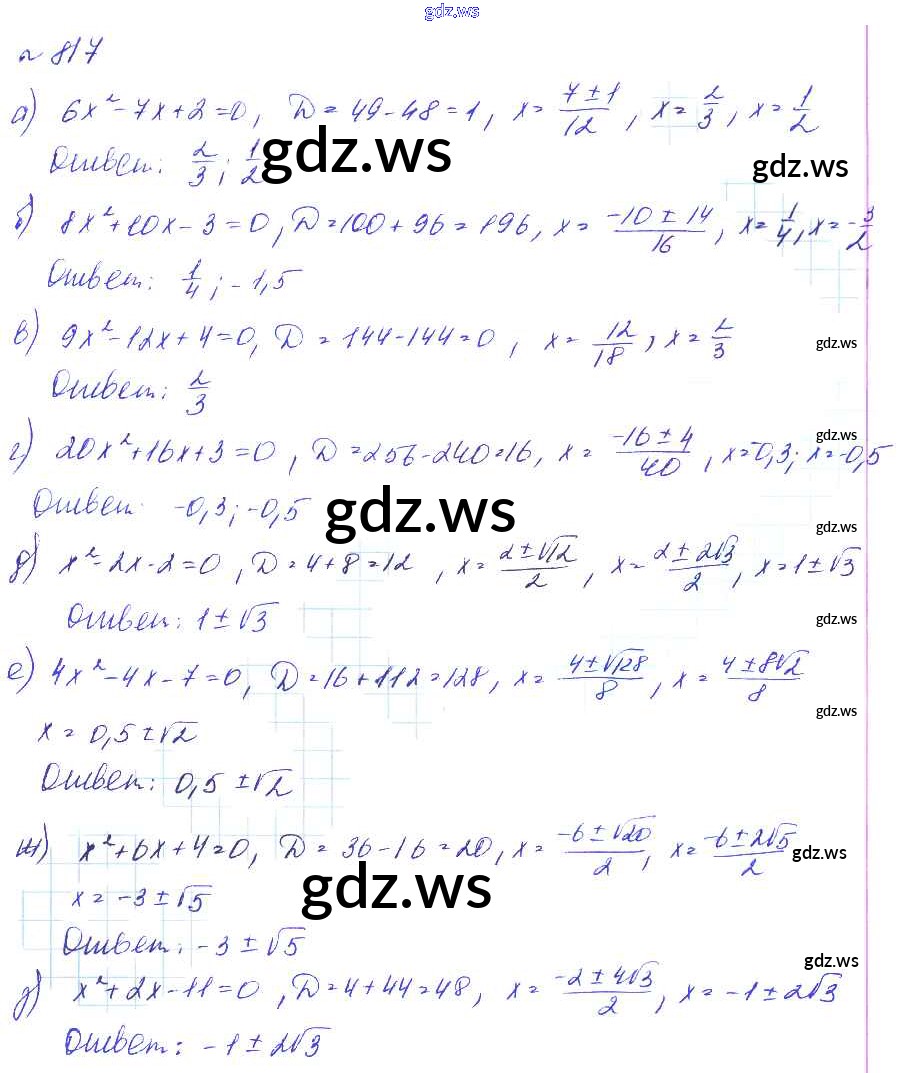 gdz.ws
№ 817
а) 6x² - 7x + 2 = 0, D = 49 - 48 = 1, x = (7 ± 1)/12, x = 2/3, x = 1/2
Ответ: 2/3; 1/2
gdz.ws
gdz.ws
б) 8x² + 10x - 3 = 0, D = 100 + 96 = 196, x = (-10 ± 14)/16, x = 1/4, x = -3/2
Ответ: 1/4; -1,5
в) 9x² - 12x + 4 = 0, D = 144 - 144 = 0, x = 12/18, x = 2/3
gdz.ws
Ответ: 2/3
г) 20x² + 16x + 3 = 0, D = 256 - 240 = 16, x = (-16 ± 4)/40, x = -0,3; x = -0,5
gdz.ws
Ответ: -0,3; -0,5
gdz.ws
gdz.ws
д) x² - 2x - 2 = 0, D = 4 + 8 = 12, x = (2 ± √12)/2, x = (2 ± 2√3)/2, x = 1 ± √3
Ответ: 1 ± √3
gdz.ws
е) 4x² - 4x - 7 = 0, D = 16 + 112 = 128, x = (4 ± √128)/8, x = (4 ± 8√2)/8
gdz.ws
x = 0,5 ± √2
Ответ: 0,5 ± √2
ж) x² + 6x + 4 = 0, D = 36 - 16 = 20, x = (-6 ± √20)/2, x = (-6 ± 2√5)/2
gdz.ws
x = -3 ± √5
gdz.ws
Ответ: -3 ± √5
gdz.ws
з) x² + 2x - 11 = 0, D = 4 + 44 = 48, x = (-2 ± 4√3)/2, x = -1 ± 2√3
Ответ: -1 ± 2√3